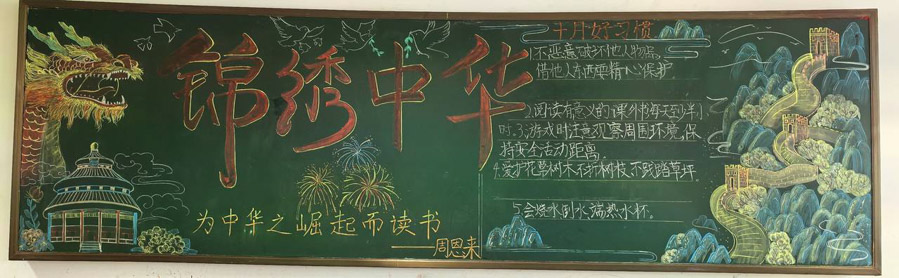 锦绣中华
为中华之崛起而读书
——周恩来
十月好习惯
1.不恶意破坏他人物品。
借他人东西要精心保护
2.阅读有意义的课外书每天至少半小
时.3.游戏时注意观察周围环境,保
持安全活动距离.
4.爱护花草树木不折树枝,不践踏草坪.
5.会烧水倒水端热水杯.